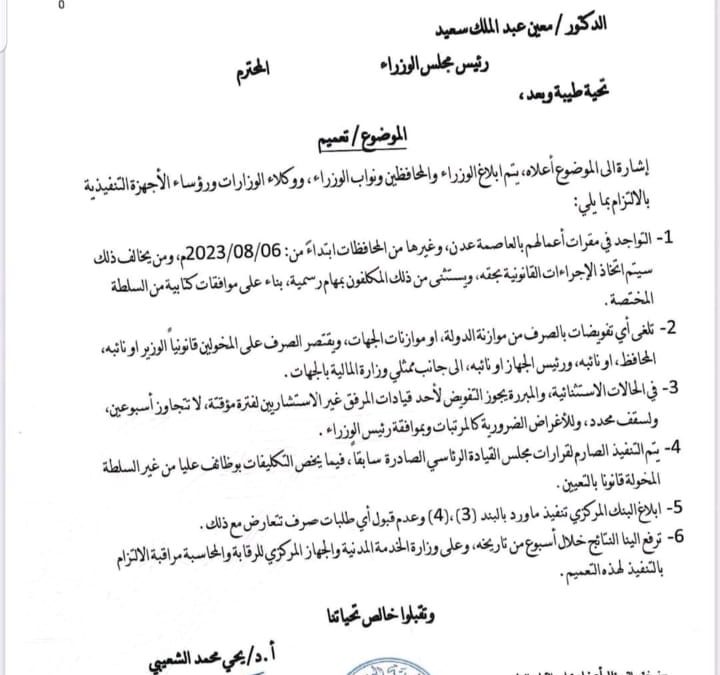 الدكتور / معين عبد الملك سعيد
رئيس مجلس الوزراء المحترم
تحية طيبة وبعد ،
الموضوع / تعميم
إشارة الى الموضوع أعلاه، يتم ابلاغ الوزراء والمحافظين ونواب الوزراء، ووكلاء الوزارات ورؤساء الأجهزة التنفيذية
بالالتزام بما يلي:
1- التواجد في مقرات أعمالهم بالعاصمة عدن، وغيرها من المحافظات ابتداءً من: 2023/08/06م، ومن يخالف ذلك
سيتم اتخاذ الإجراءات القانونية بحقه، ويستثنى من ذلك المكلفون بمهام رسمية، بناء على موافقات كتابية من السلطة
المختصة.
2- تلغى أي تفويضات بالصرف من موازنة الدولة، او موازنات الجهات، ويقتصر الصرف على المخولين قانونياً الوزير او نائبه،
المحافظ، او نائبه، ورئيس الجهاز او نائبه، الى جانب ممثلي وزارة المالية بالجهات.
3- في الحالات الاستثنائية، والمبررة يجوز التفويض لأحد قيادات المرفق غير الاستشاريين لفترة مؤقتة، لا تتجاوز أسبوعين،
ولسقف محدد، وللأغراض الضرورية كالمرتبات وبموافقة رئيس الوزراء.
4- يتم التنفيذ الصارم لقرارات مجلس القيادة الرئاسي الصادرة سابقاً، فيما يخص التكليفات بوظائف عليا من غير السلطة
المخولة قانونا بالتعيين.
5- ابلاغ البنك المركزي تنفيذ ماورد بالبند (3)، (4) وعدم قبول أي طلبات صرف تتعارض مع ذلك.
6- ترفع الينا النتائج خلال أسبوع من تاريخه، وعلى وزارة الخدمة المدنية والجهاز المركزي للرقابة والمحاسبة مراقبة الالتزام
بالتنفيذ لهذه التعميم.
وتقبلوا خالص تحياتنا
أ.د/ يحي محمد الشعيبي